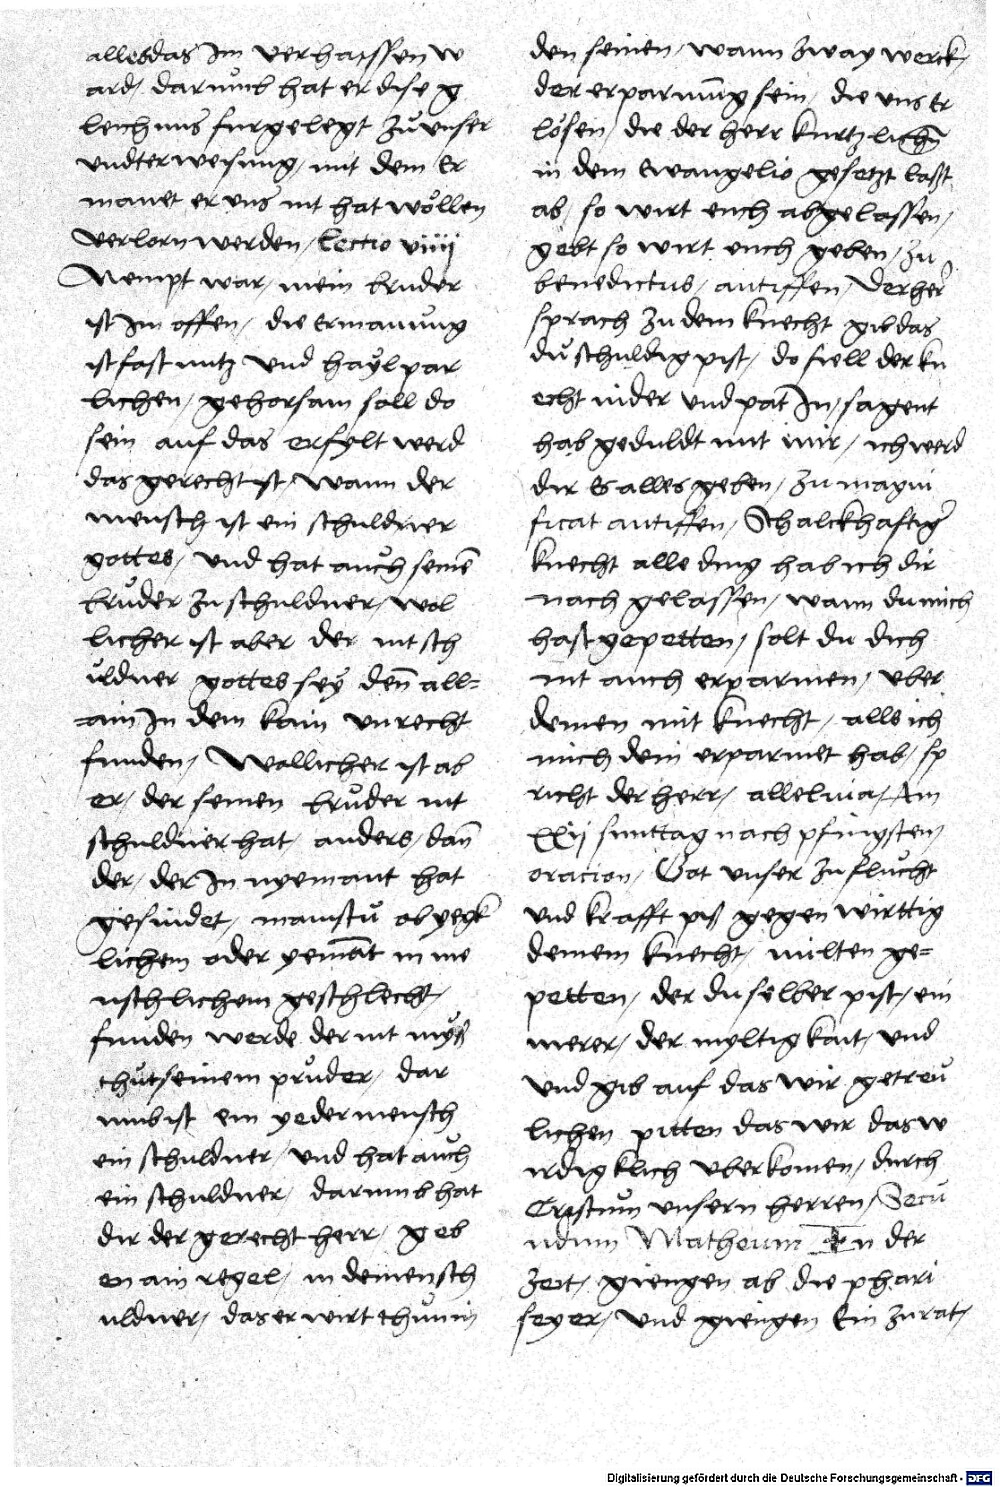 allesdas Im verhaissen w
ard, darumb hat er dise g
leichnus furgelegt zů unser
undterweisung, mit dem Er
manet er uns nit hat wöllen
verlorn werden, Lectio viiij
Nempt war, mein bruder
ist Im offen, die Ermanung
ist fast nutz und haylpar
lichen, gehorsam soll do
sein auf das erfylt werd
das gerecht ist, Wann der
mensch ist ein schuldner
gottes, und hat auch seinē
brůder zu schuldner, wol
licher ist aber der nit sch
uldner gottes sey den̄ all=
ain In dem kain unrecht
funden, Wollicher ist ab
er, der seinen brůder nit
schuldner hat, anders, dan̄
der, der In nyemant hat
gesindet, mainstu ob yegk
lichem oder yemāt in me
nschlichem geschlecht,
funden werde der nit
thůt seinem průder, dar
umb ist ein yeder mensch
ein schuldner, und hat auch
ein schuldner, darumb hat
dir der gerecht herr, geb
en ain regel, in deinen sch
uldner, das er wirt thůn in
den seinen, wann zway werck,
der erparmūg sein, die uns Er
lösen, die der herr kurtzlichn̄
in dem Ewangelio gesetzt laßt
ab, so wirt euch abgelassen,
gebt so wirt euch geben, zu
benedictus, antiffen, Der her
sprach zu dem knecht gib das
dů schuldig pist, do fiell der kn
echt nider und pat In, sagent
hab geduldt mit mir, ich werd
dir Es alles geben, zu magni
ficat antiffen, Schalckhaftig
knecht alle ding hab ich dir
nach gelassen, wann du mich
hast gepetten, solt du dich
nit auch erparmen, uber
deinen mit knecht, alls ich
mich dein erparmet hab, sp
richt der herr, alleluia, Am
xxij sunttag nach pfingsten,
oracion, Got unser zuflucht
und krafft piß gegenwirttig
deinem knecht, milten ge=
petten, der du selber pist, ein
merer, der myltigkait, und
und gib auf das wir getreů
lichen pitten das wir das w
irdigklich uberkomen, durch
Cristum unsern herren, Secu
ndum Matheum In der
zeit, giengen ab die phari
seyer, und giengen Ein zu rat,
Digitalisierung gefördert durch die Deutsche Forschungsgemeinschaft - DFG